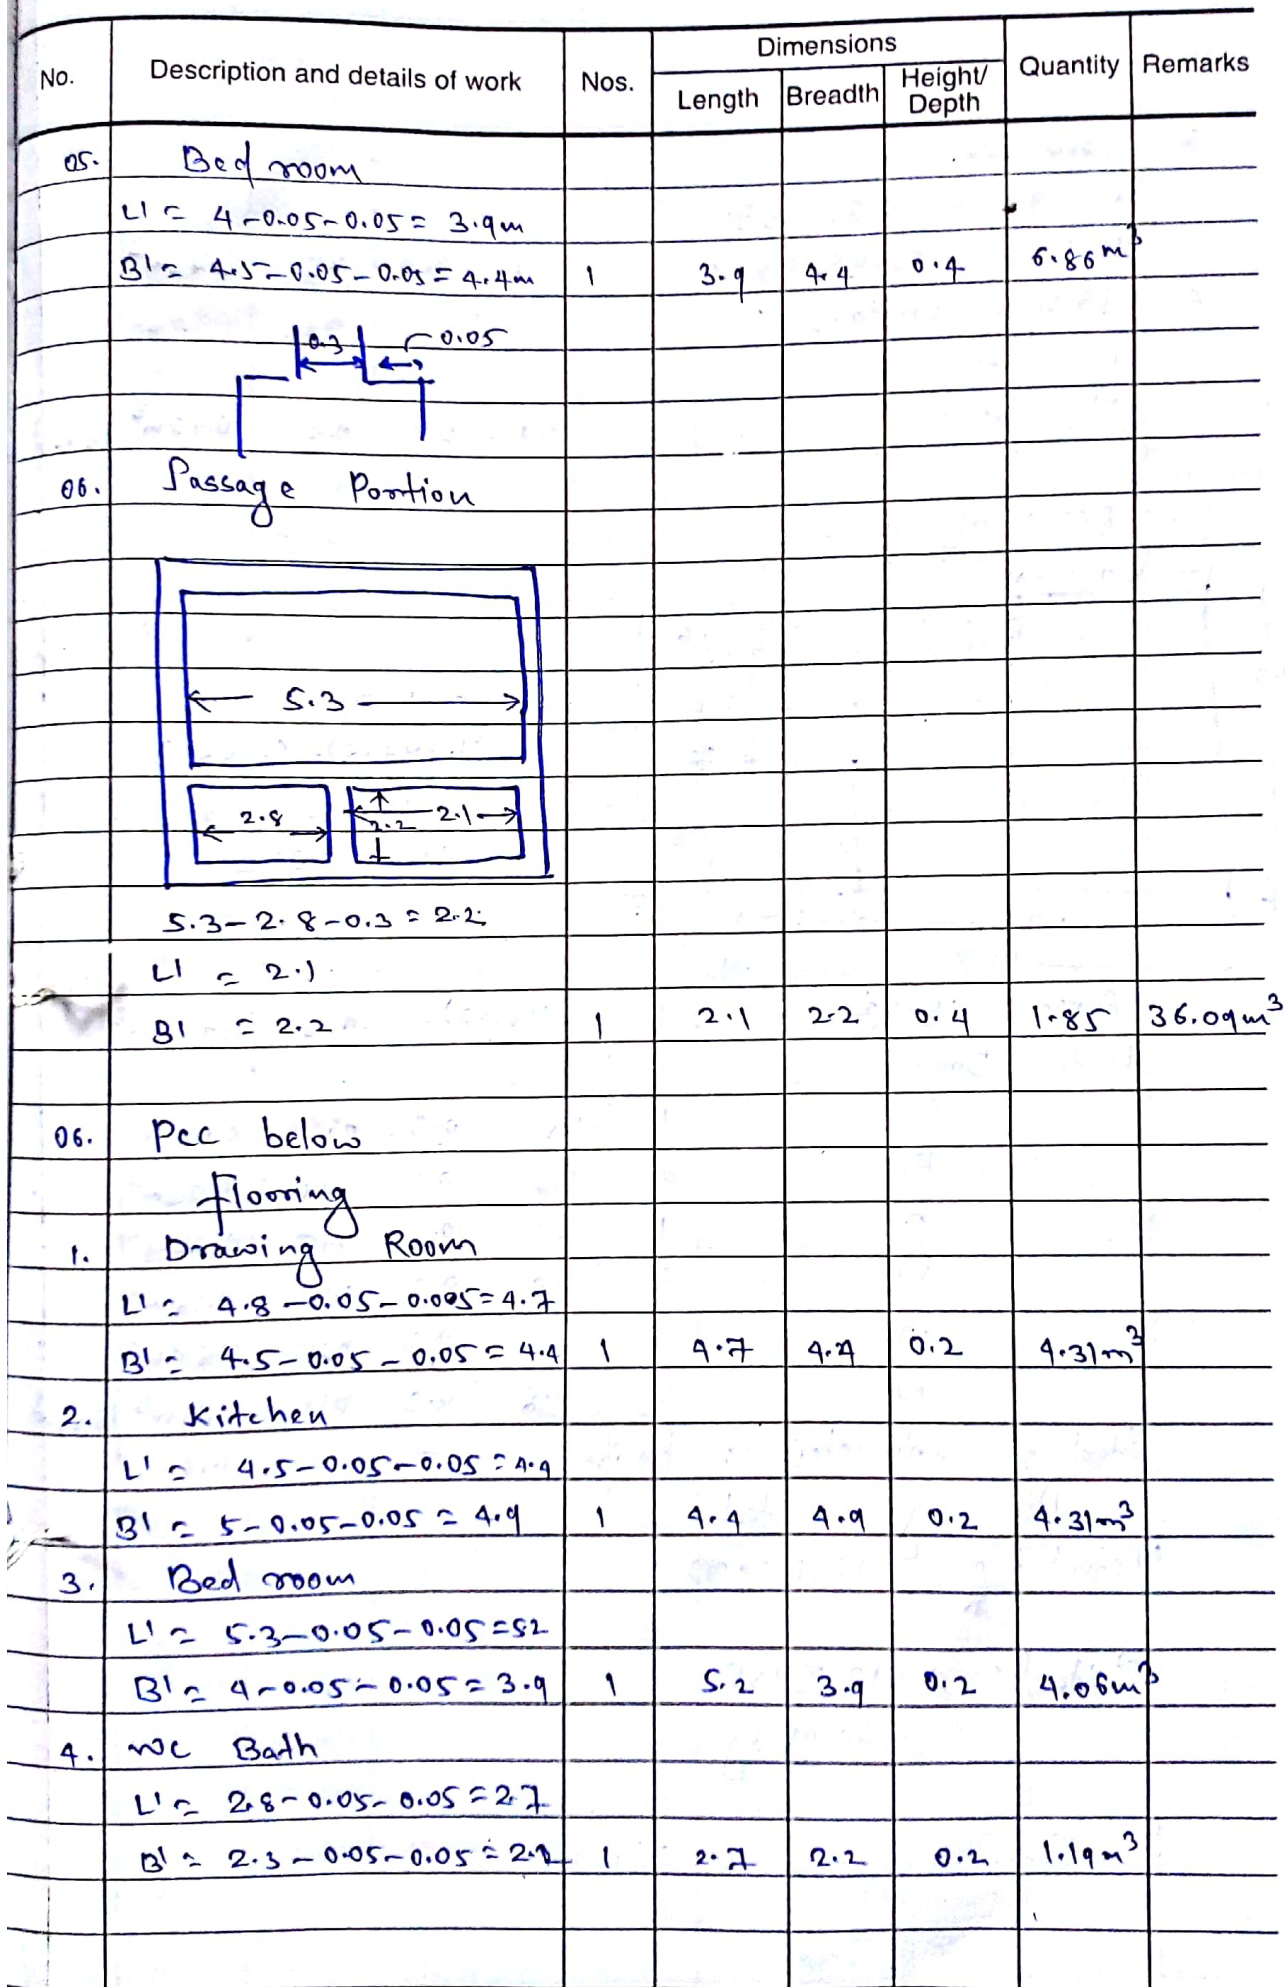 No. Description and details of work Nos. Dimensions Quantity Remarks
Length Breadth Height/ Depth
05. Bed room
L1 = 4-0.05-0.05 = 3.9m
B1 = 4.5-0.05-0.05 = 4.4m 1 3.9 4.4 0.4 6.86 m3
0.3 0.05
06. Passage Portion
5.3
2.8 2.2 2.1
5.3-2.8-0.3 = 2.2
L1 = 2.1
B1 = 2.2 1 2.1 2.2 0.4 1.85 36.09 m3
06. Pcc below
flooring
1. Drawing Room
L1 = 4.8-0.05-0.005 = 4.7
B1 = 4.5-0.05-0.05 = 4.4 1 4.7 4.4 0.2 4.31 m3
2. Kitchen
L1 = 4.5-0.05-0.05 = 4.4
B1 = 5-0.05-0.05 = 4.9 1 4.4 4.9 0.2 4.31 m3
3. Bed room
L1 = 5.3-0.05-0.05 = 52
B1 = 4-0.05-0.05 = 3.9 1 5.2 3.9 0.2 4.06 m3
4. WC Bath
L1 = 2.8-0.05-0.05 = 2.7
B1 = 2.3-0.05-0.05 = 2.2 1 2.7 2.2 0.2 1.19 m3